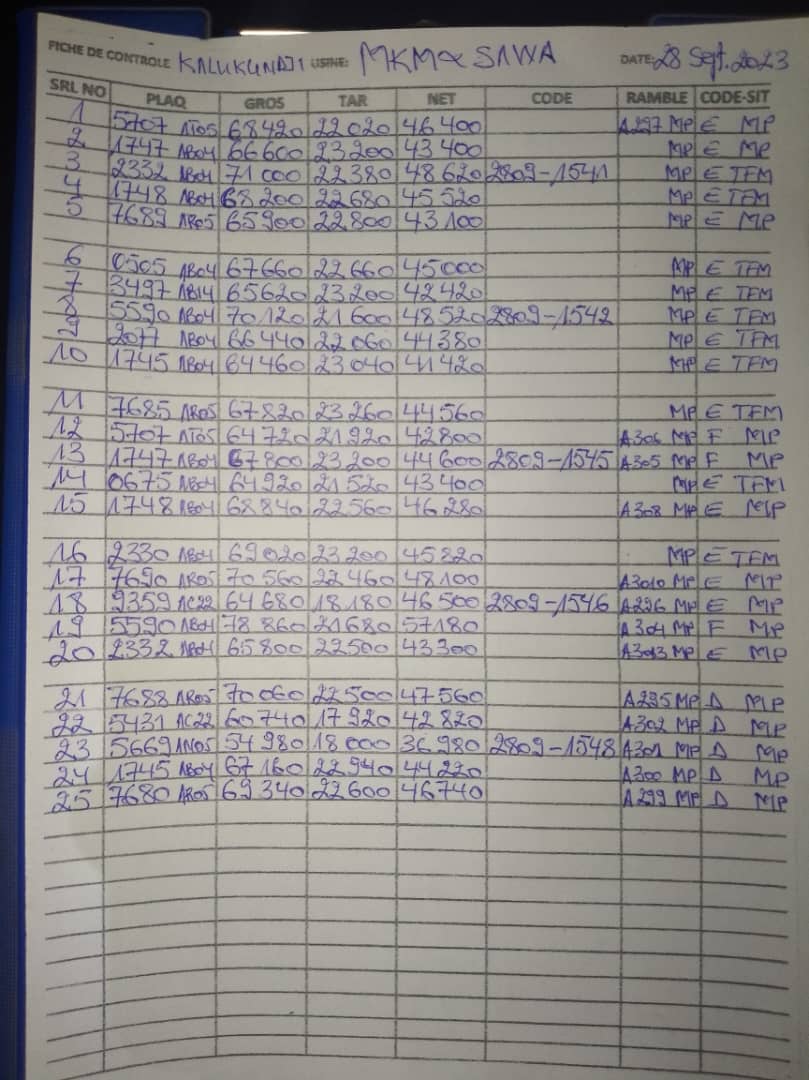 FICHE DE CONTROLE KALUKUNDJI USINE: MKM & SAWA DATE: 28 Sept. 2023
SRL NO PLAQ GROS TAR NET CODE RAMBLE CODE-SIT
1 5707 AT05 68420 22020 46400 A297 MP E MP
2 1747 AB04 66600 23200 43400 MP E MP
3 2332 AB04 71000 22380 48620 2809-1541 MP E TFM
4 1748 AB04 68200 22680 45520 MP E TFM
5 7689 AR05 65900 22800 43100 MP E MP
6 0505 AB04 67660 22660 45000 MP E TFM
7 3497 AB14 65620 23200 42420 MP E TFM
8 5590 AB04 70120 21600 48520 2809-1542 MP E TFM
9 2077 AB04 66440 22060 44380 MP E TFM
10 1745 AB04 64460 23040 41420 MP E TFM
11 7685 AR05 67820 23260 44560 MP E TFM
12 5707 AT05 64720 21920 42800 A306 MP F MP
13 1747 AB04 67800 23200 44600 2809-1545 A305 MP F MP
14 0675 AB04 64920 21520 43400 MP E TFM
15 1748 AB04 68840 22560 46280 A308 MP E MP
16 2330 AB04 69020 23200 45820 MP E TFM
17 7690 AR05 70560 22460 48100 A3010 MP E MP
18 9359 AC22 64680 18180 46500 2809-1546 A296 MP E MP
19 5590 AB04 78860 21680 57180 A304 MP F MP
20 2332 AB04 65800 22500 43300 MP E MP
21 7688 AR05 70060 22500 47560 A295 MP D MP
22 5431 AC22 60740 17920 42820 A302 MP D MP
23 5669 AN05 54980 18000 36980 2809-1548 A301 MP D MP
24 1745 AB04 67160 22940 44220 A300 MP D MP
25 7680 AR05 69340 22600 46740 A299 MP D MP